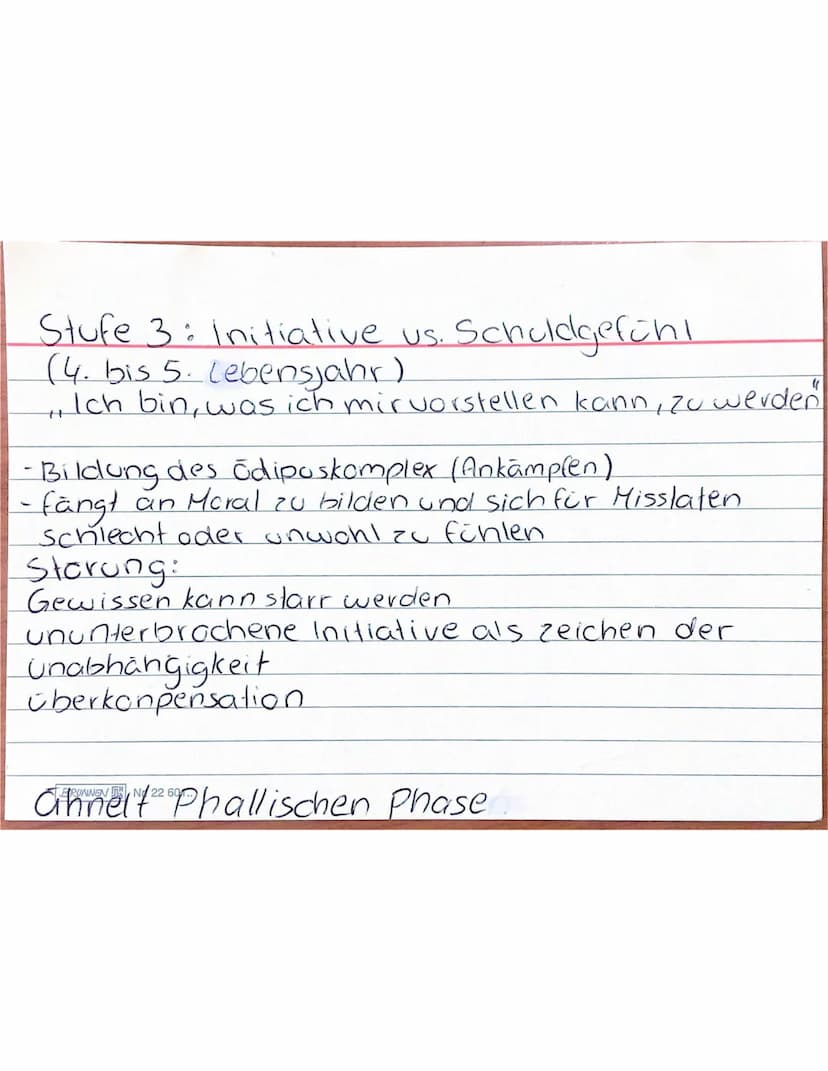 Stufe 3: Initiative vs. Schuldgefühl
(4. bis 5. Lebensjahr)
„Ich bin, was ich mir vorstellen kann, zu werden"
- Bildung des Ödipuskomplex (Ankämpfen)
- fängt an Moral zu bilden und sich für Misstaten
schlecht oder unwohl zu fühlen
Störung:
Gewissen kann starr werden
ununterbrochene Initiative als zeichen der
unabhängigkeit
überkonpensation
BRUNNEN Nr. 22 60
ähnelt Phallischen Phase